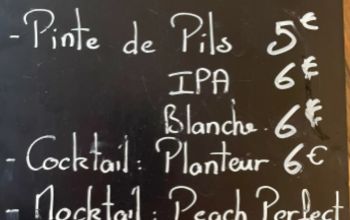 - Pinte de Pils 5€
IPA 6€
Blanche 6€
- Cocktail : Planteur 6€
- Mocktail : Peach Perfect